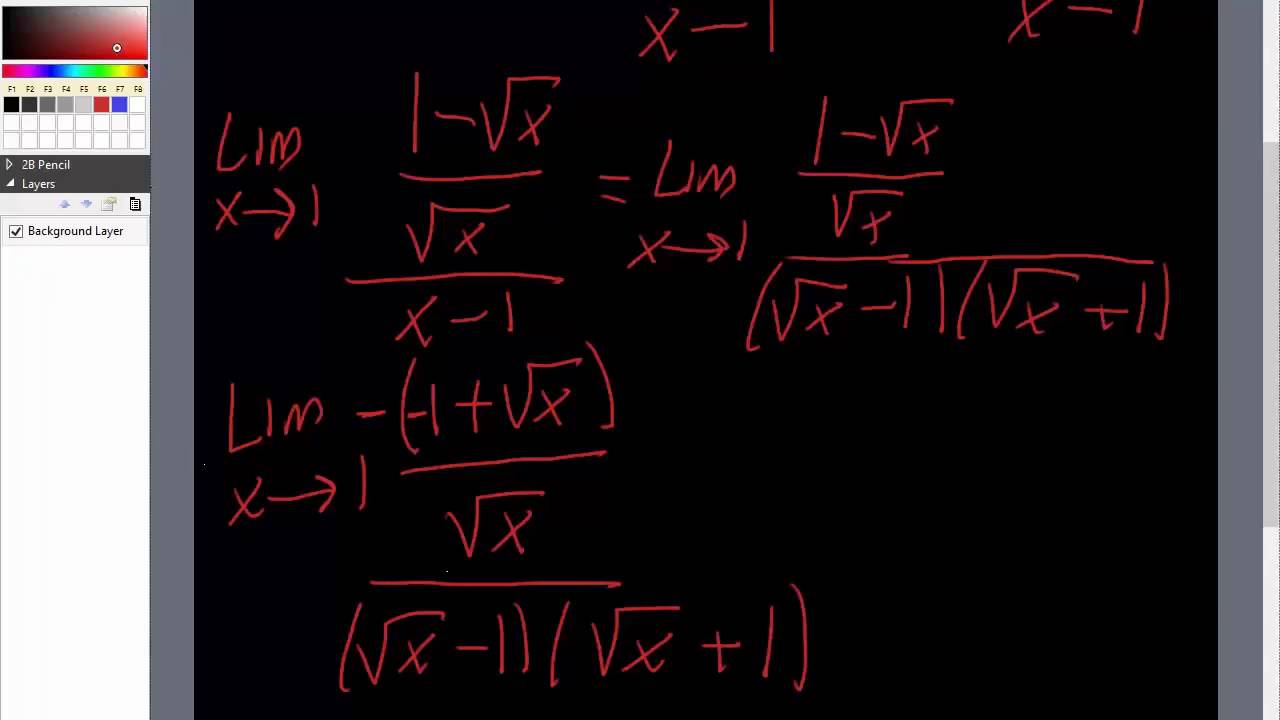 F1 F2 F3 F4 F5 F6 F7 F8
2B Pencil
Layers
Background Layer
x - 1 x - 1
Lim x→1 ((1-√x)/√x)/(x-1) = Lim x→1 ((1-√x)/√x)/((√x-1)(√x+1))
Lim x→1 (-(-1+√x)/√x)/((√x-1)(√x+1))